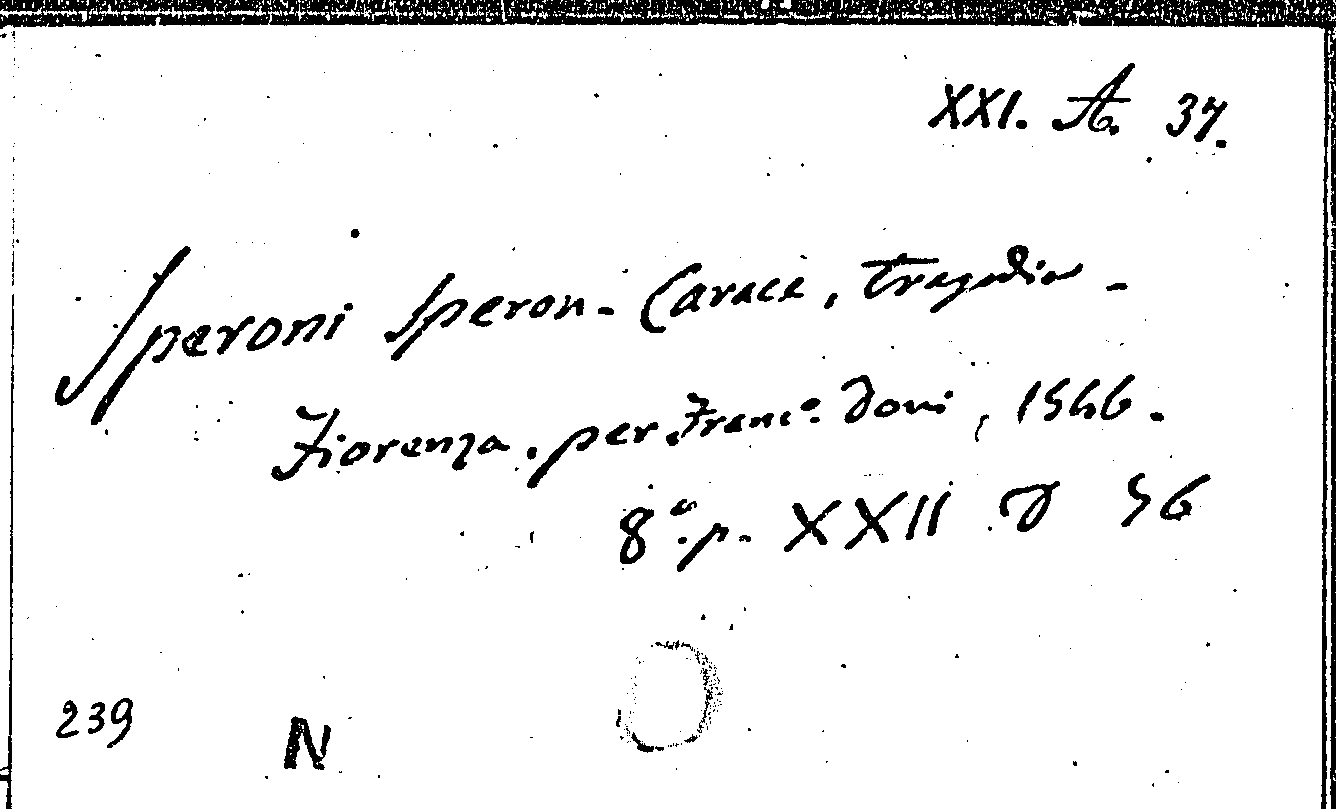 XXI. A. 37.
Speroni Speron. Canace, tragedia.
Fiorenza. per Franc.º Doni, 1546.
8º. p. XXII 56
239 N